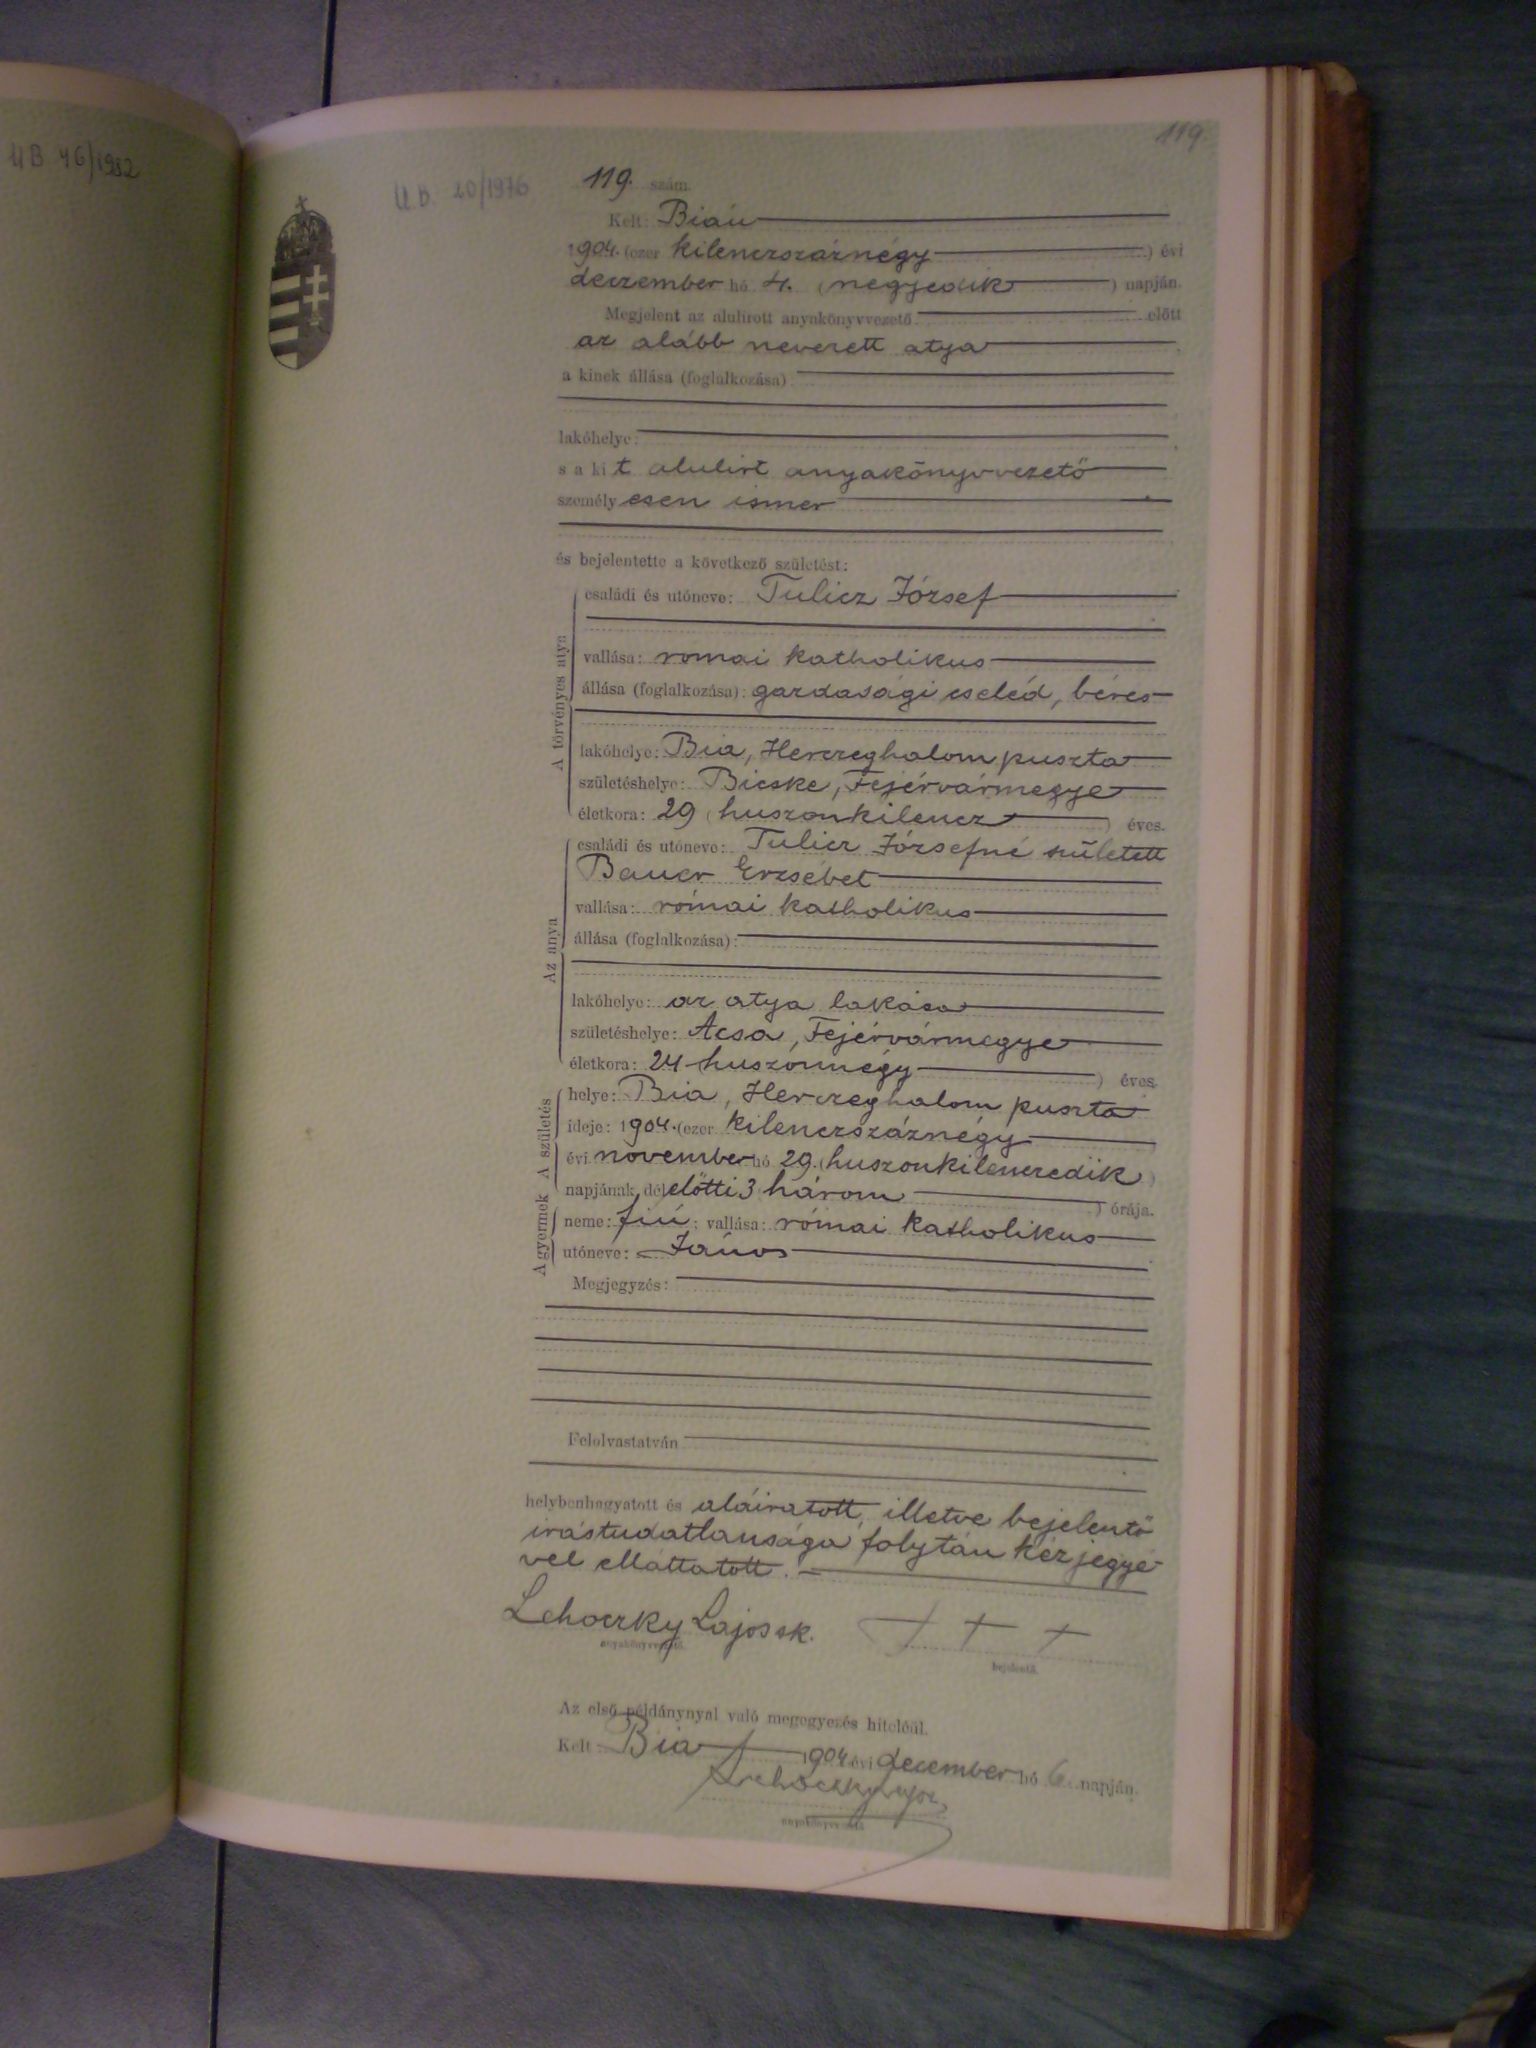 UB 46/1982
119.
U.B. 20/1976
119. szám.
Kelt: Bián
1904. (ezer kilenczszáznégy) évi
deczember hó 4. (negyedik) napján.
Megjelent az alulirott anyakönyvvezető előtt
az alább nevezett atya
a kinek állása (foglalkozása)
lakóhelye:
s a kit alulirt anyakönyvvezető
személyesen ismer
és bejelentette a következő születést:
A törvényes atya
családi és utóneve: Tulicz József
vallása: romai katholikus
állása (foglalkozása): gazdasági cseléd, béres
lakóhelye: Bia, Herczeghalom puszta
születéshelye: Bicske, Fejérvármegye
életkora: 29 (huszonkilencz) éves.
Az anya
családi és utóneve: Tulicz Józsefné született
Bauer Erzsébet
vallása: római katholikus
állása (foglalkozása):
lakóhelye: az atya lakása
születéshelye: Acsa, Fejérvármegye
életkora: 24 huszonnégy) éves.
A születés
helye: Bia, Herczeghalom puszta
ideje: 1904. (ezer kilenczszáznégy
évi november hó 29. (huszonkilenczedik)
napjának délelőtti 3 három) órája.
A gyermek
neme: fiú; vallása: római katholikus
utóneve: János
Megjegyzés:
Felolvastatván
helybenhagyatott és aláiratott, illetve bejelentő
irástudatlansága folytán kézjegyé-
vel elláttatott.
Lehoczky Lajos sk. + + +
anyakönyvvezető. bejelentő.
Az első példánynyal való megegyezés hiteléül.
Kelt Bia 1904 évi december hó 6. napján.
Lehoczky Lajos
anyakönyvvezető